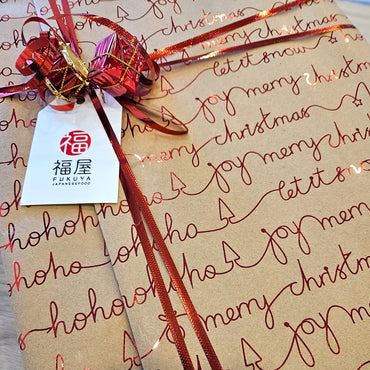 hohoho
merry christmas
let it snow
joy merry christmas
merry christmas
joy merry christmas
福
福屋
FUKUYA
JAPANESEFOOD
let it snow
hohoho
joy merry
hoho
merry christmas
hohoho
joy merry